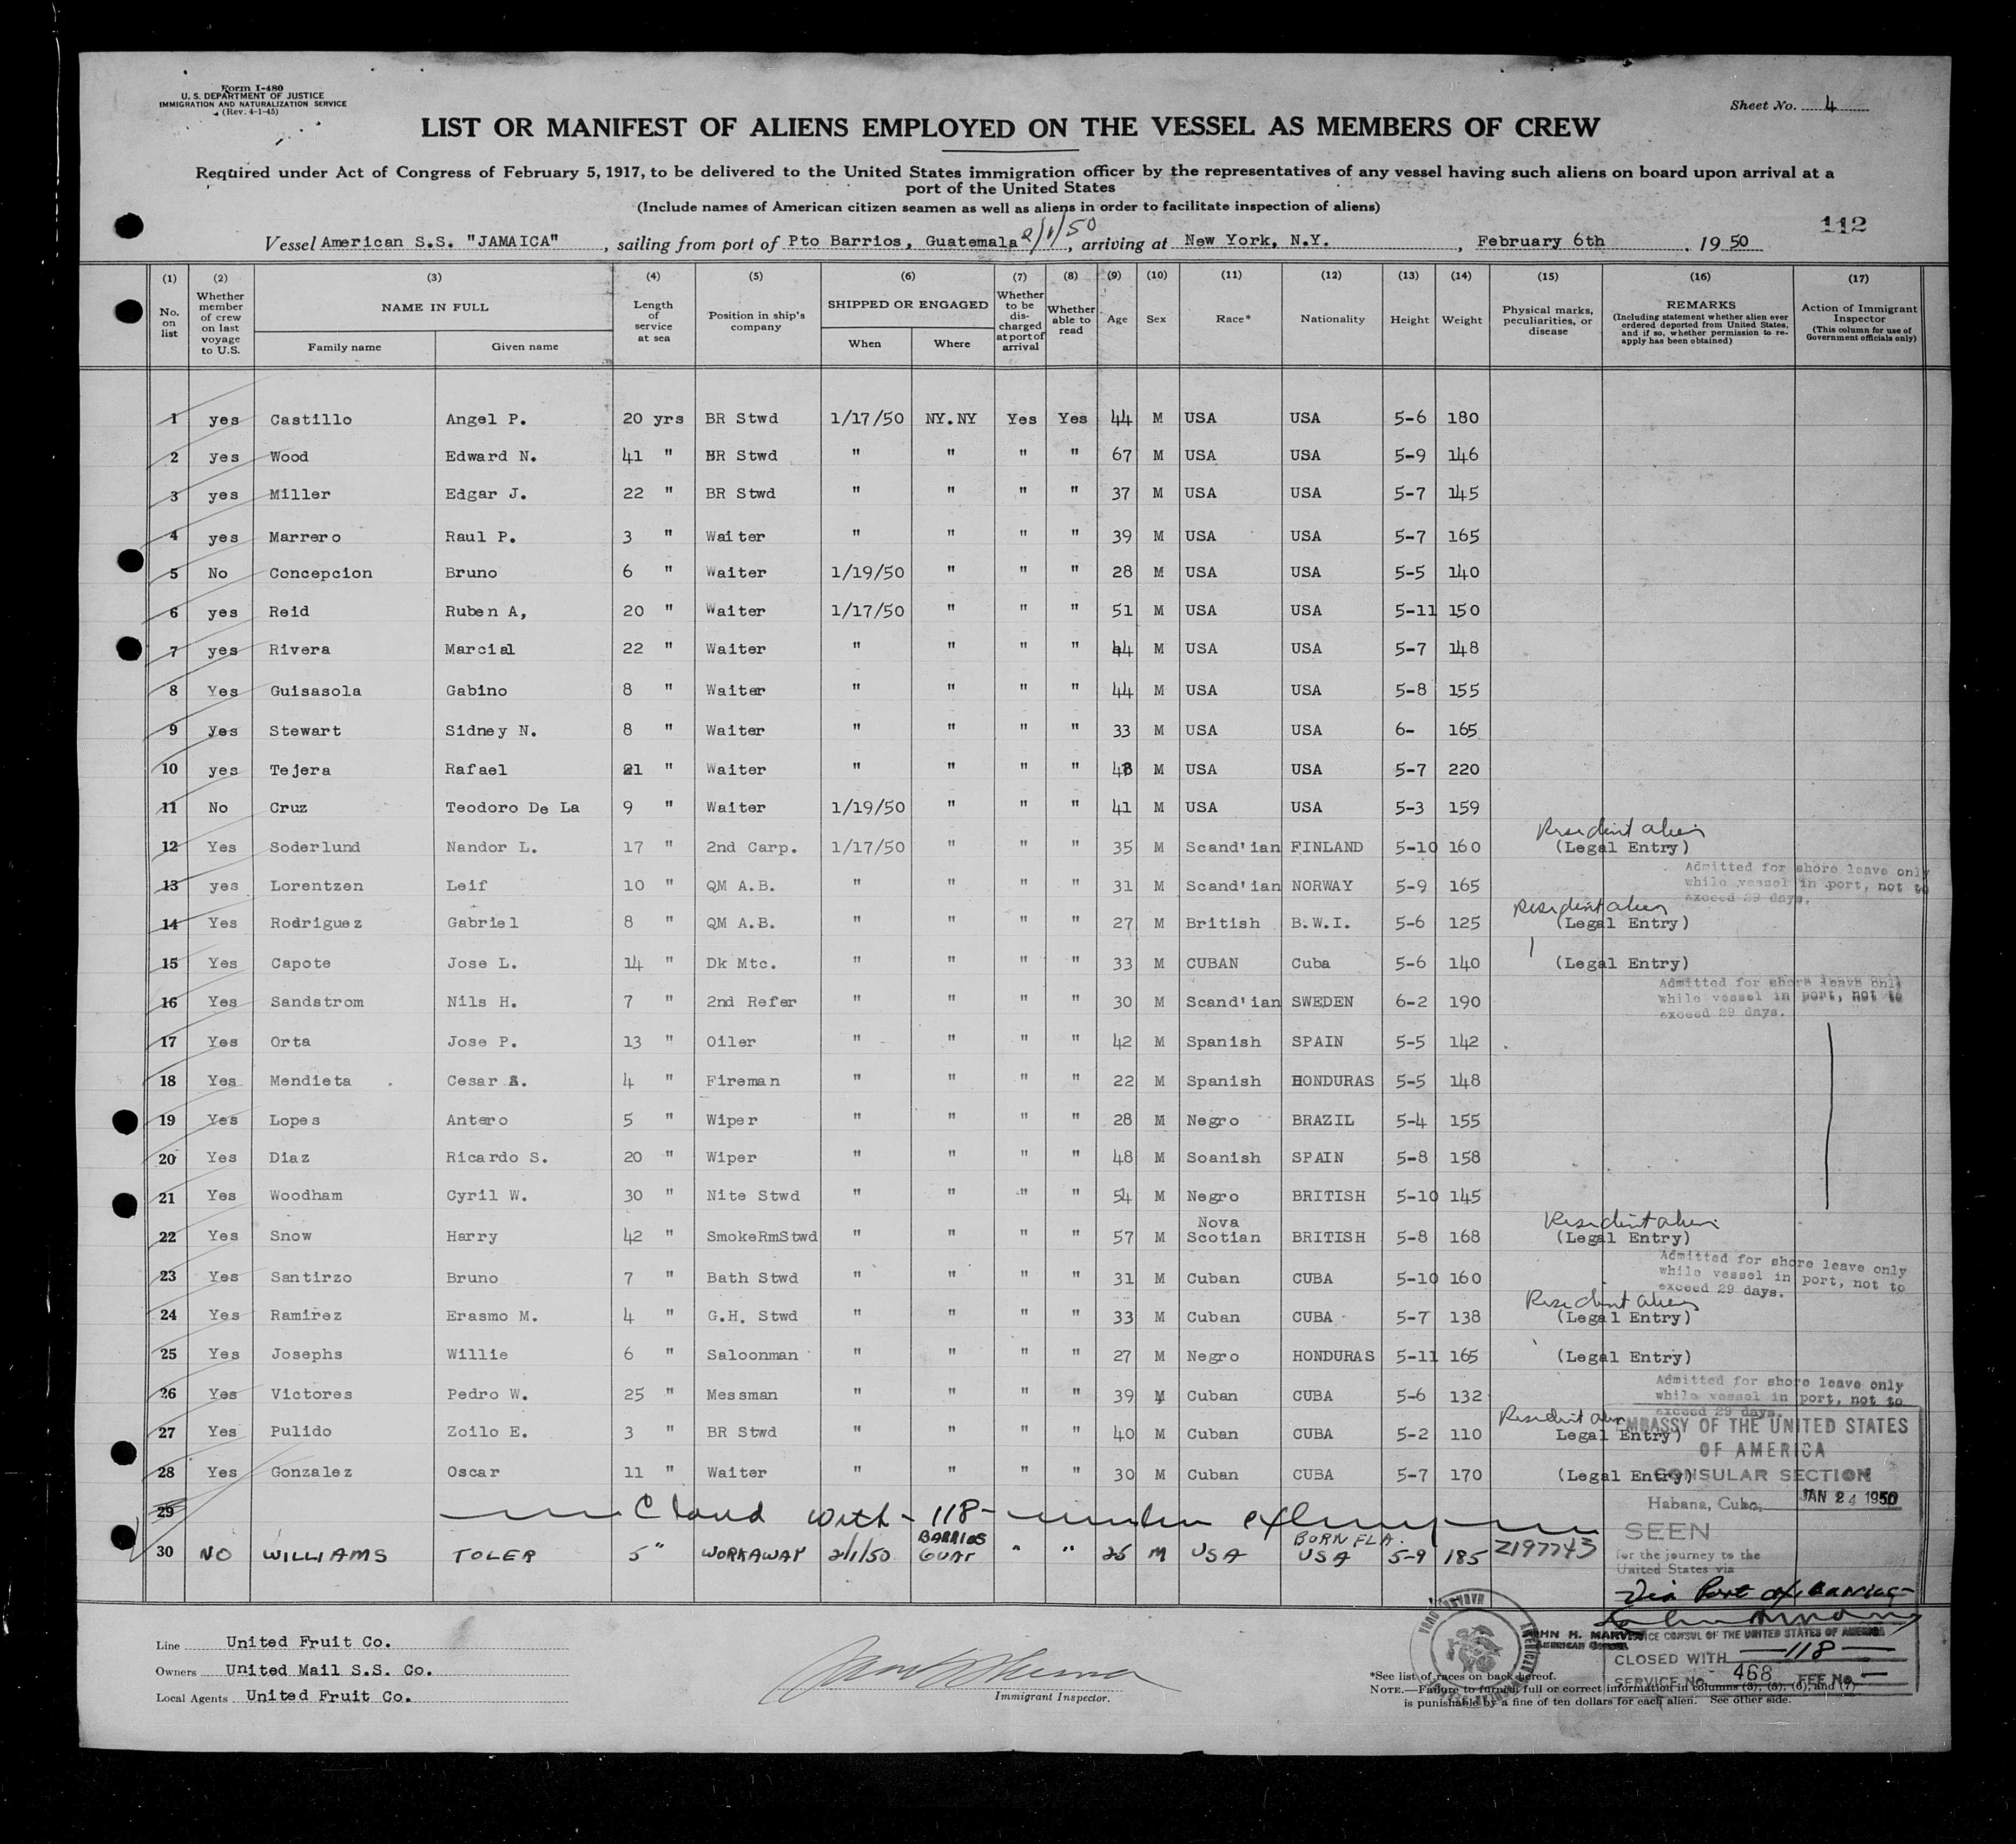 Form I-480
U. S. DEPARTMENT OF JUSTICE
IMMIGRATION AND NATURALIZATION SERVICE
(Rev. 4-1-45)
Sheet No. 4
LIST OR MANIFEST OF ALIENS EMPLOYED ON THE VESSEL AS MEMBERS OF CREW
Required under Act of Congress of February 5, 1917, to be delivered to the United States immigration officer by the representatives of any vessel having such aliens on board upon arrival at a
port of the United States
(Include names of American citizen seamen as well as aliens in order to facilitate inspection of aliens)
112
Vessel American S.S. "JAMAICA", sailing from port of Pto Barrios, Guatemala 2/1/50, arriving at New York, N.Y., February 6th, 1950
(1) (2) (3) (4) (5) (6) (7) (8) (9) (10) (11) (12) (13) (14) (15) (16) (17)
No. on list
Whether member of crew on last voyage to U.S.
NAME IN FULL
Family name
Given name
Length of service at sea
Position in ship's company
SHIPPED OR ENGAGED
When
Where
Whether to be discharged at port of arrival
Whether able to read
Age
Sex
Race*
Nationality
Height
Weight
Physical marks, peculiarities, or disease
REMARKS
(Including statement whether alien ever ordered deported from United States, and if so, whether permission to re-apply has been obtained)
Action of Immigrant Inspector
(This column for use of Government officials only)
1 yes Castillo Angel P. 20 yrs BR Stwd 1/17/50 NY.NY Yes Yes 44 M USA USA 5-6 180
2 yes Wood Edward N. 41 " BR Stwd " " " " 67 M USA USA 5-9 146
3 yes Miller Edgar J. 22 " BR Stwd " " " " 37 M USA USA 5-7 145
4 yes Marrero Raul P. 3 " Waiter " " " " 39 M USA USA 5-7 165
5 No Concepcion Bruno 6 " Waiter 1/19/50 " " " 28 M USA USA 5-5 140
6 yes Reid Ruben A, 20 " Waiter 1/17/50 " " " 51 M USA USA 5-11 150
7 yes Rivera Marcial 22 " Waiter " " " " 44 M USA USA 5-7 148
8 Yes Guisasola Gabino 8 " Waiter " " " " 44 M USA USA 5-8 155
9 yes Stewart Sidney N. 8 " Waiter " " " " 33 M USA USA 6- 165
10 yes Tejera Rafael 21 " Waiter " " " " 48 M USA USA 5-7 220
11 No Cruz Teodoro De La 9 " Waiter 1/19/50 " " " 41 M USA USA 5-3 159
Resident alien
12 Yes Soderlund Nandor L. 17 " 2nd Carp. 1/17/50 " " " 35 M Scand'ian FINLAND 5-10 160 (Legal Entry)
13 yes Lorentzen Leif 10 " QM A.B. " " " " 31 M Scand'ian NORWAY 5-9 165 Admitted for shore leave only
while vessel in port, not to
exceed 29 days.
Resident alien
14 Yes Rodriguez Gabriel 8 " QM A.B. " " " " 27 M British B.W.I. 5-6 125 (Legal Entry)
15 Yes Capote Jose L. 14 " Dk Mtc. " " " " 33 M CUBAN Cuba 5-6 140 (Legal Entry)
16 Yes Sandstrom Nils H. 7 " 2nd Refer " " " " 30 M Scand'ian SWEDEN 6-2 190 Admitted for shore leave only
while vessel in port, not to
exceed 29 days.
17 Yes Orta Jose P. 13 " Oiler " " " " 42 M Spanish SPAIN 5-5 142
18 Yes Mendieta Cesar A. 4 " Fireman " " " " 22 M Spanish HONDURAS 5-5 148
19 Yes Lopes Antero 5 " Wiper " " " " 28 M Negro BRAZIL 5-4 155
20 Yes Diaz Ricardo S. 20 " Wiper " " " " 48 M Soanish SPAIN 5-8 158
21 Yes Woodham Cyril W. 30 " Nite Stwd " " " " 54 M Negro BRITISH 5-10 145
Resident alien
22 Yes Snow Harry 42 " SmokeRmStwd " " " " 57 M Nova Scotian BRITISH 5-8 168 (Legal Entry)
23 Yes Santirzo Bruno 7 " Bath Stwd " " " " 31 M Cuban CUBA 5-10 160 Admitted for shore leave only
while vessel in port, not to
exceed 29 days.
Resident alien
24 Yes Ramirez Erasmo M. 4 " G.H. Stwd " " " " 33 M Cuban CUBA 5-7 138 (Legal Entry)
25 Yes Josephs Willie 6 " Saloonman " " " " 27 M Negro HONDURAS 5-11 165 (Legal Entry)
26 Yes Victores Pedro W. 25 " Messman " " " " 39 M Cuban CUBA 5-6 132 Admitted for shore leave only
while vessel in port, not to
exceed 29 days.
Resident alien
27 Yes Pulido Zoilo E. 3 " BR Stwd " " " " 40 M Cuban CUBA 5-2 110 Legal Entry)
28 Yes Gonzalez Oscar 11 " Waiter " " " " 30 M Cuban CUBA 5-7 170 (Legal Entry)
29 Closed with - 118 -
30 NO WILLIAMS TOLER 5 " WORKAWAY 2/1/50 BARRIOS GUAT " " 25 M USA BORN FLA. USA 5-9 185 Z197743
EMBASSY OF THE UNITED STATES
OF AMERICA
CONSULAR SECTION
Habana, Cuba, JAN 24 1950
SEEN
for the journey to the
United States via
JOHN H. MARVIN
VICE CONSUL OF THE UNITED STATES OF AMERICA
CLOSED WITH 118
SERVICE No. 468 FEE No. —
Line United Fruit Co.
Owners United Mail S.S. Co.
Local Agents United Fruit Co.
Immigrant Inspector.
*See list of races on back hereof.
NOTE.—Failure to furnish full or correct information in columns (3), (5), (6), and (7)
is punishable by a fine of ten dollars for each alien. See other side.